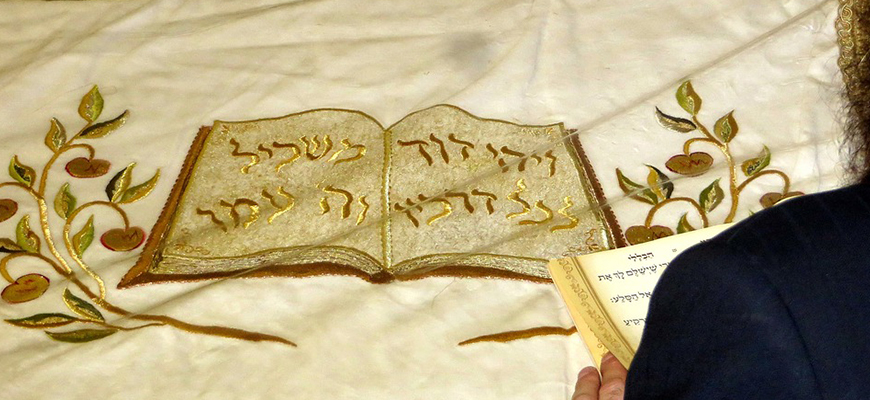 ויהי דוד
לכל דרכיו
משכיל
וה עמו
הכללי
שֶׁיְשַׁלֵּם לָךְ אֶת
אֶל הַסָּלַע: